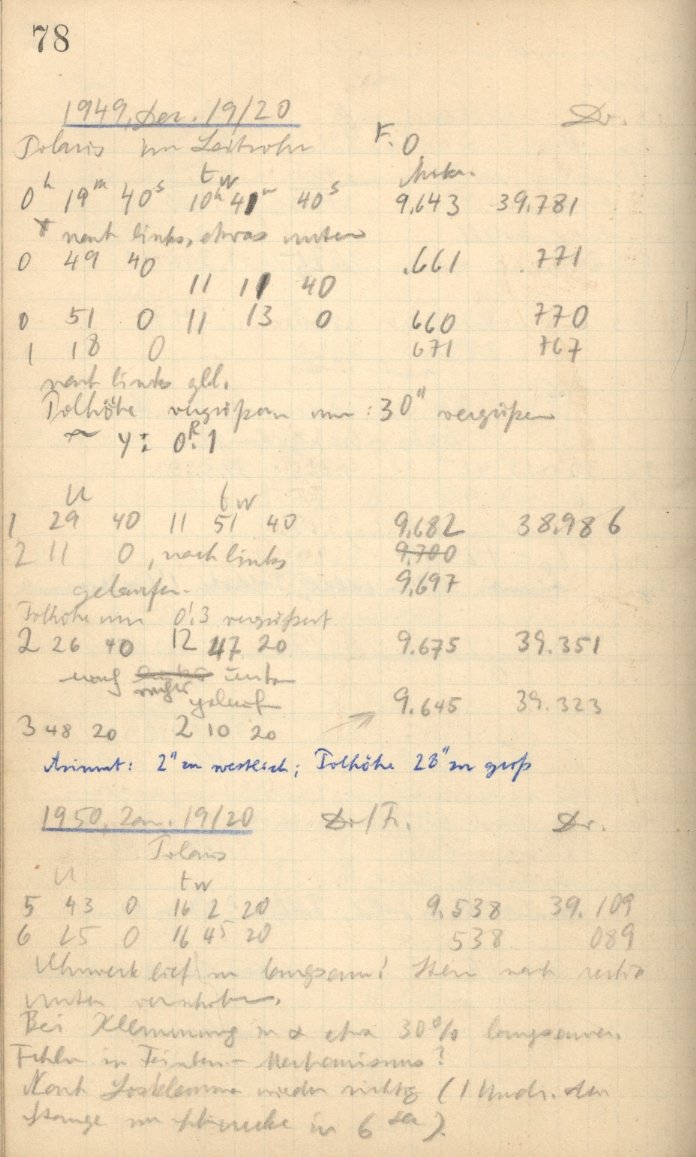 78
1949, Dez. 19/20 Dr.
Polaris im Leitrohr F. O
tw Mikr.
0h 19m 40s 10h 41m 40s 9.643 39.781
* nach links, etwas unten
0 49 40 .661 .771
11 11 40
0 51 0 11 13 0 660 770
1 18 0 671 767
nach links gel.
Polhöhe um: 30" vergrößern
~ y: 0R.1
U tw
1 29 40 11 51 40 9.682 38.986
2 11 0, nach links 9.700
gelaufen. 9.697
Polhöhe um 0!3 vergrößert
2 26 40 12 47 20 9.675 39.351
nach unten
rechts gelauf 9.645 39.323
3 48 20 2 10 20
Azimut: 2" zu westlich; Polhöhe 23" zu groß
1950, Jan. 19/20 Dr/Fr. Dr.
Polaris
U tw
5 43 0 16 2 20 9.538 39.109
6 25 0 16 45 20 538 089
Uhrwerk lief zu langsam! Stern nach rechts
unten verschoben.
Bei Klemmung in α etwa 30% langsamer.
Fehler in Feinbew-Mechanismus?
Nach Losklemmen wieder richtig (1 Umdr. der
Stange in 6 sec).